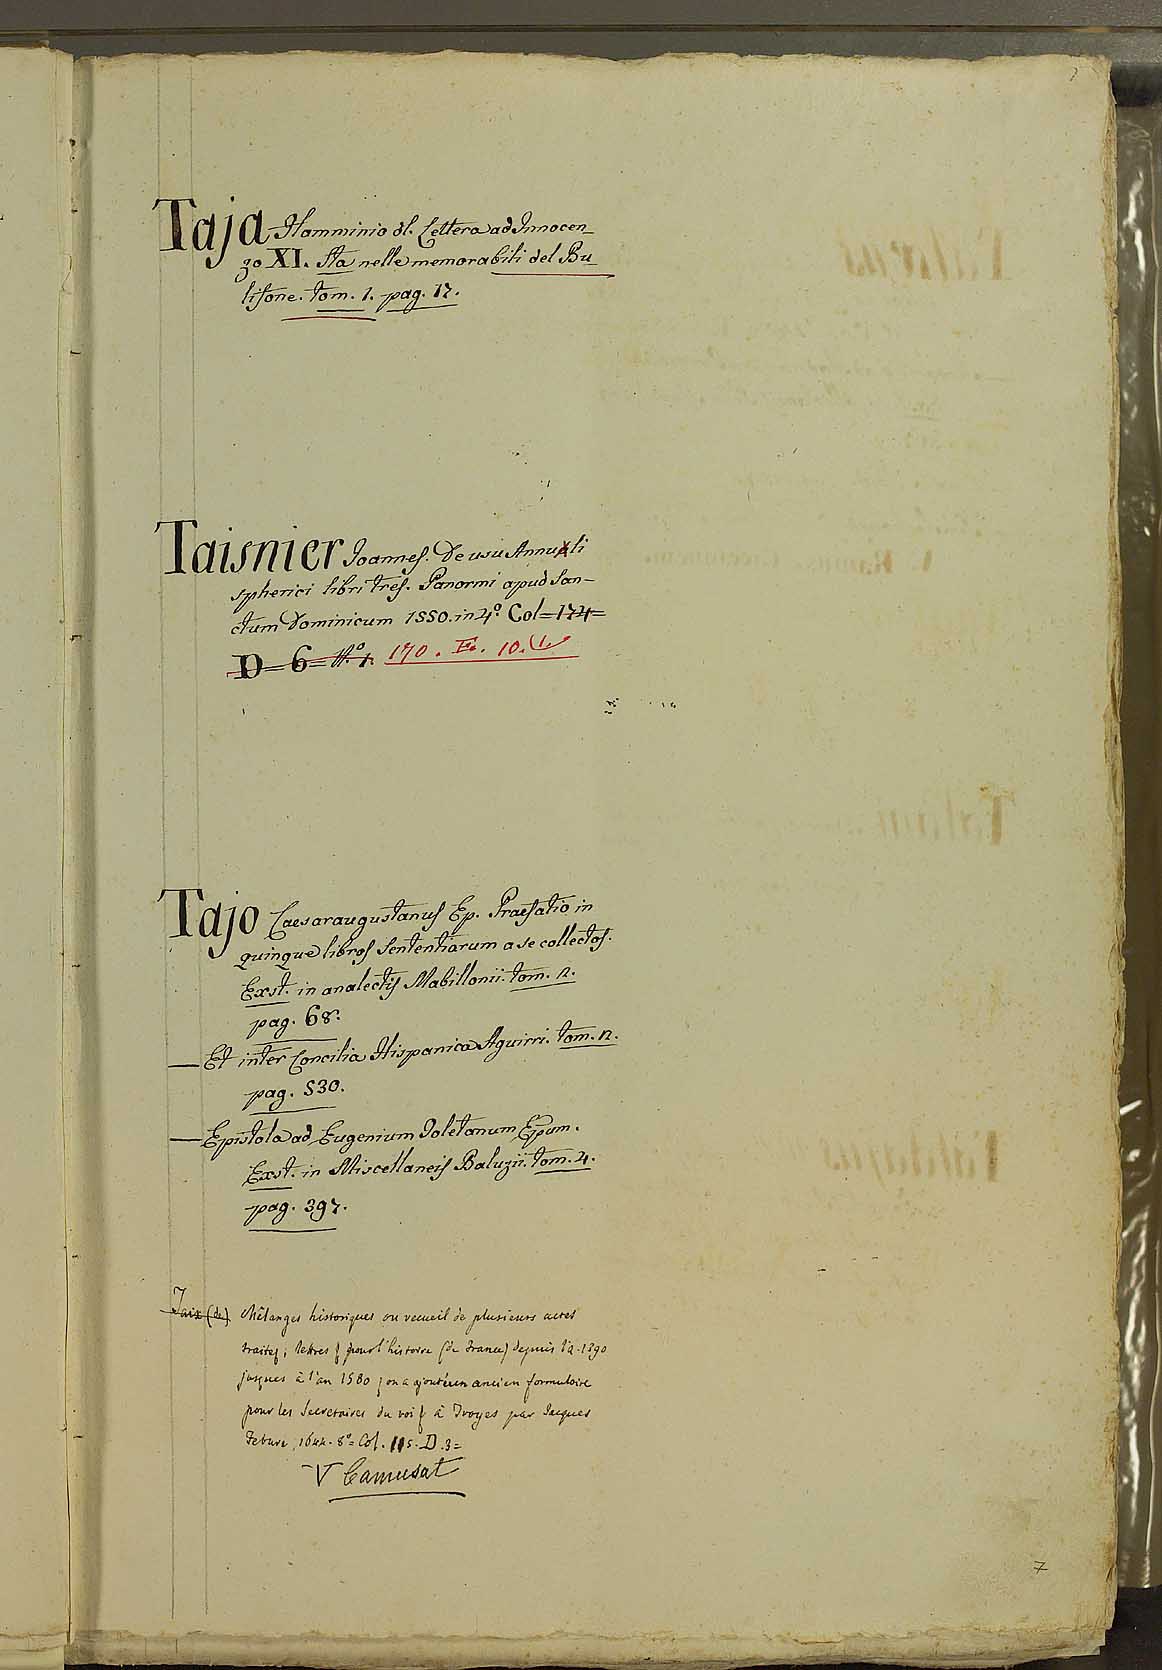 Taja Flamminio di. Lettera ad Innocen_
zo XI. Sta nelle memorabili del Bu_
lifone. tom. 1. pag. 17.
Taisnier Joannes. De usu Annuli
spherici libri tres. Panormi apud San_
ctum Dominicum 1550. in 4.º Col=174=
D=6=N.º 1. 170. E. 10. (1.
Tajo Caesaraugustanus Ep. Praefatio in
quinque libros Sententiarum a se collectos.
Exst. in analectis Mabillonii. tom. 2.
pag. 68.
— Et inter Concilia Hispanica Aguirri. tom. 2.
pag. 530.
— Epistola ad Eugenium Toletanum Epum.
Exst. in Miscellaneis Baluzii. tom. 4.
pag. 397.
Taix (de) Mêlanges historiques ou recueil de plusieurs actes
traites, lettres & pour l'histoire (de France) depuis l'a. 1390
jusques à l'an 1580 on a ajouté un ancien formulaire
pour les Secretaires du roi & à Troyes par Jacques
Febure, 1644. 8º= Col. 115. D. 3=
V Camusat
7